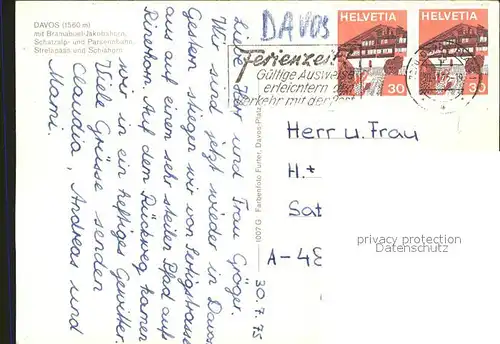 DAVOS (1560 m)
mit Bramabuel-Jakobshorn,
Schatzalp- und Parsennbahn,
Strelapass und Schiahorn
30. 7. 75
Liebe Herr und Frau Gröger.
Wir sind jetzt wieder in Davos
Gestern stiegen wir von Sertigstrasse
aus auf einen sehr steilen Pfad aufs
Rinerhorn. Auf dem Rückweg kamen
wir in ein heftiges Gewitter.
Viele Grüsse senden
Claudia, Andreas und
Mami.
1007 G Farbenfoto Furter, Davos-Platz
DAVOS
Ferienzeit
Gültige Ausweise
erleichtern den
Verkehr mit der Post
HELVETIA
30
HELVETIA
30
Herr u. Frau
H.*
Sat
A-48
privacy protection
oldthing.de